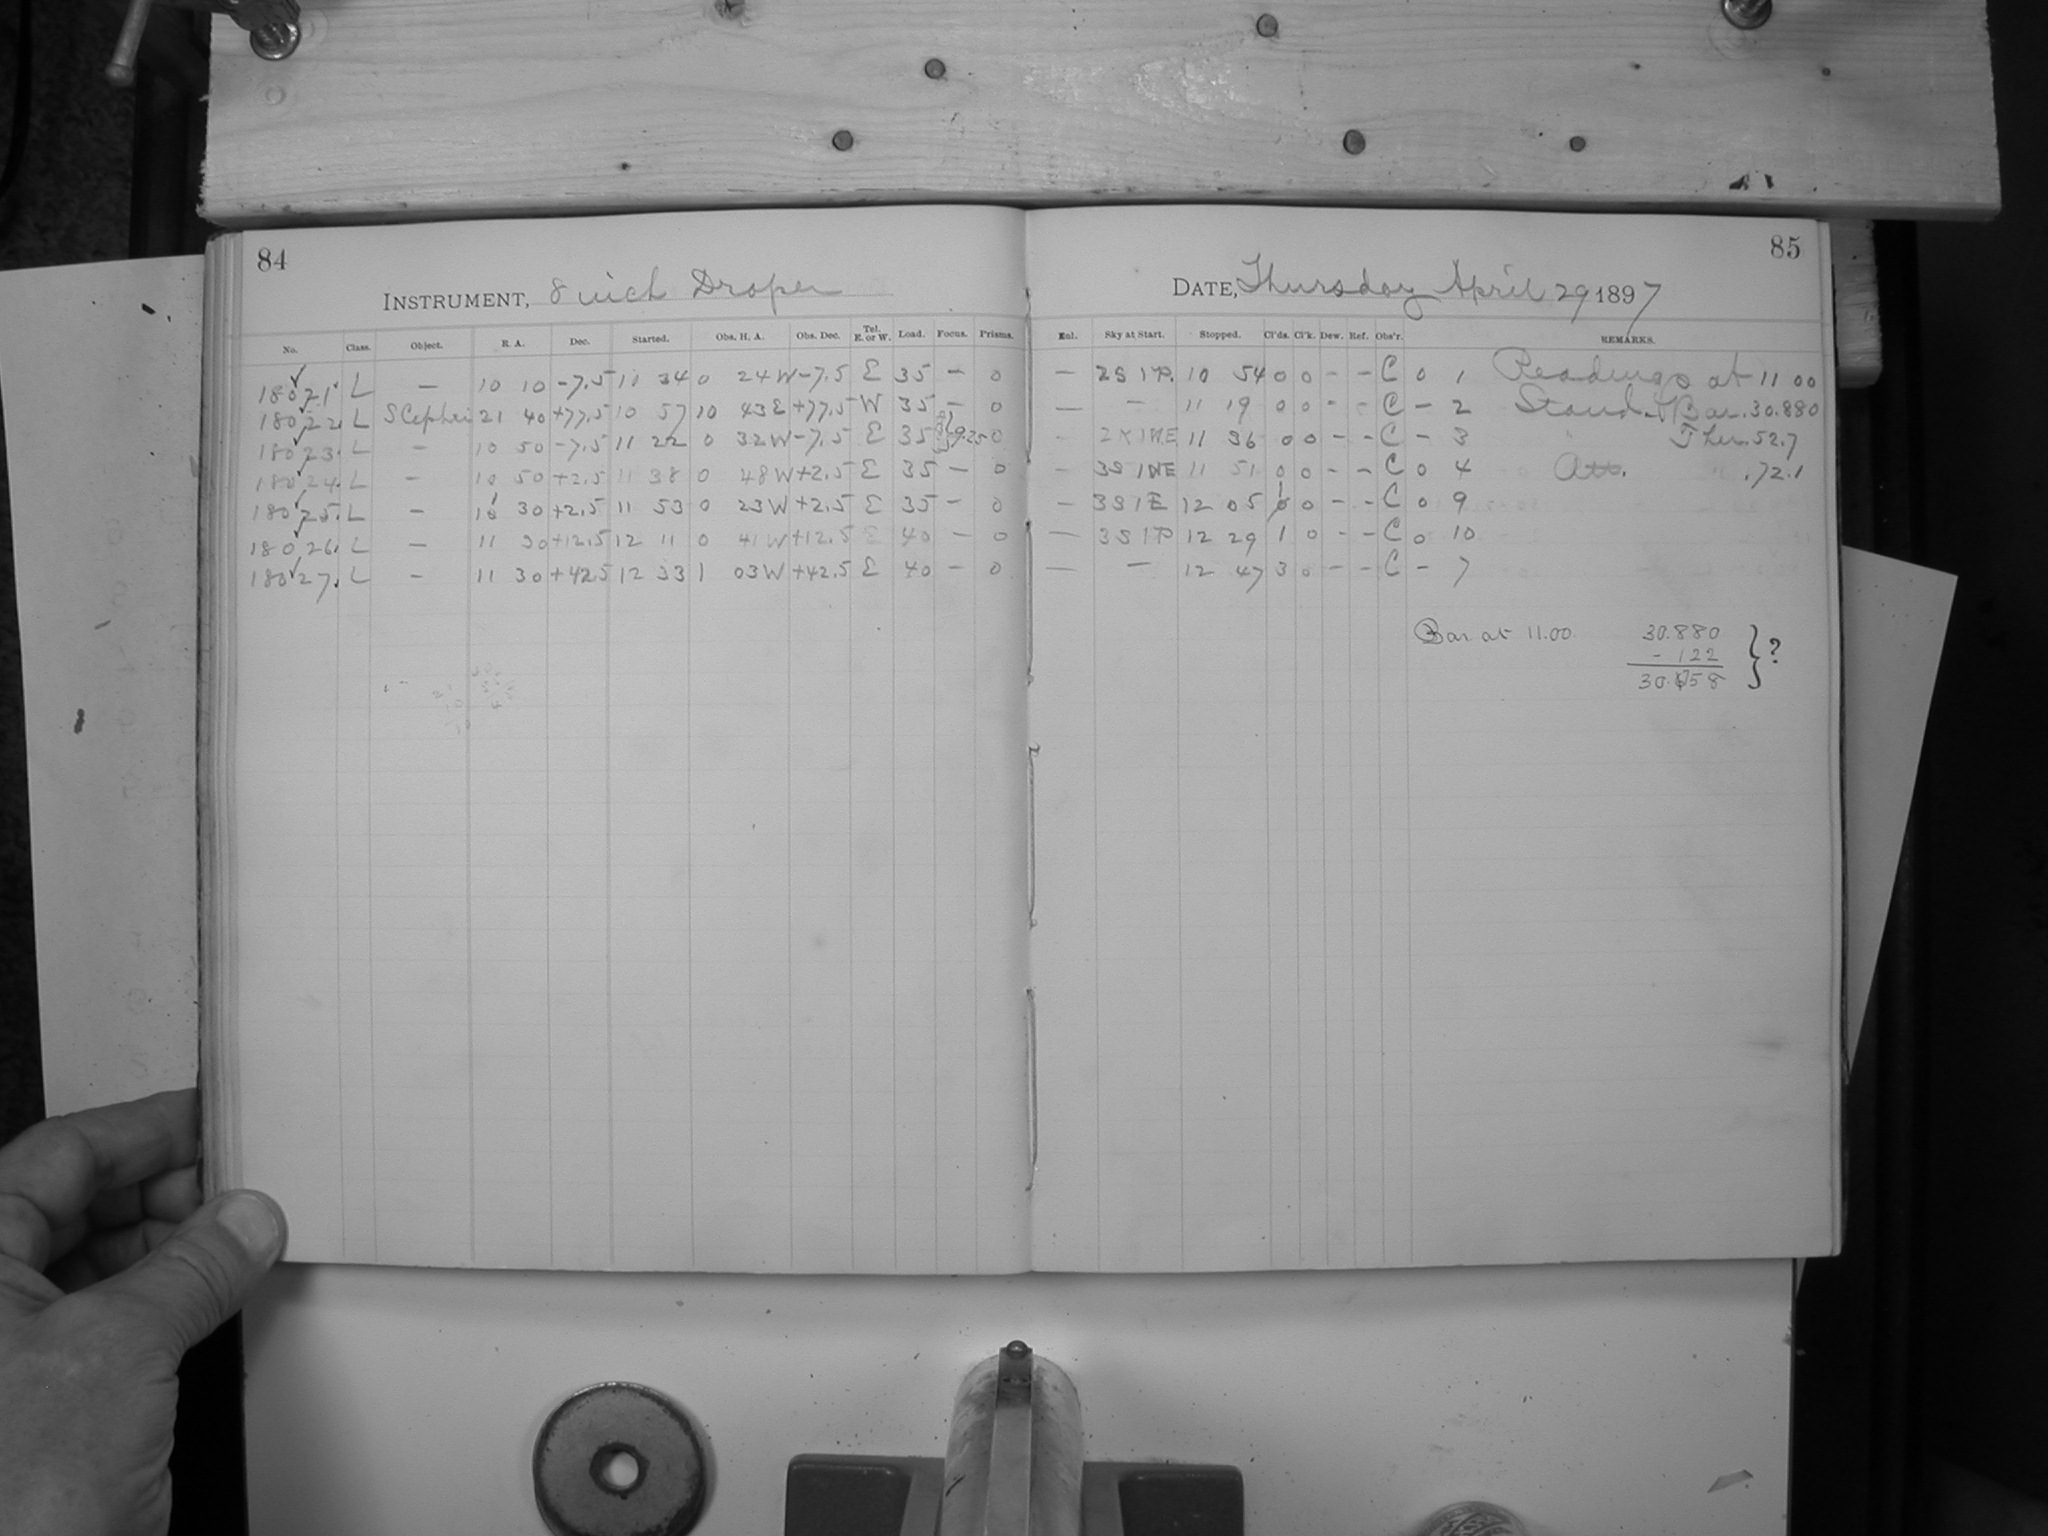 84
INSTRUMENT, 8 inch Draper
No. Class. Object. R. A. Dec. Started. Obs. H. A. Obs. Dec. Tel. E. or W. Load. Focus. Prisms.
18021. L — 10 10 -7.5 10 34 0 24 W -7.5 E 35 — 0
18022. L S Cephei 21 40 +77.5 10 57 10 43 E +77.5 W 35 — 0
18023. L — 10 50 -7.5 11 22 0 32 W -7.5 E 35 9.25 0
18024. L — 10 50 +2.5 11 38 0 48 W +2.5 E 35 — 0
18025. L — 11 30 +2.5 11 53 0 23 W +2.5 E 35 — 0
18026. L — 11 30 +12.5 12 11 0 41 W +12.5 E 40 — 0
18027. L — 11 30 +42.5 12 33 1 03 W +42.5 E 40 — 0
85
DATE, Thursday April 29 1897
Enl. Sky at Start. Stopped. Cl'ds. Cl'k. Dew. Ref. Obs'r. REMARKS.
— 2S 1P. 10 54 0 0 - - C 0 1 Readings at 11 00
— — 11 19 0 0 - - C - 2 Stand. Bar. 30.880
- 2K 1N.E 11 36 0 0 - - C - 3 " Ther. 52.7
— 3S 1NE 11 51 0 0 - - C 0 4 Att. " .72.1
— 3S 1E 12 05 1 0 - - C 0 9
— 3S 1P 12 29 1 0 - - C 0 10
— — 12 47 3 0 - - C - 7
Bar at 11.00. 30.880
- 122
30.758
} ?